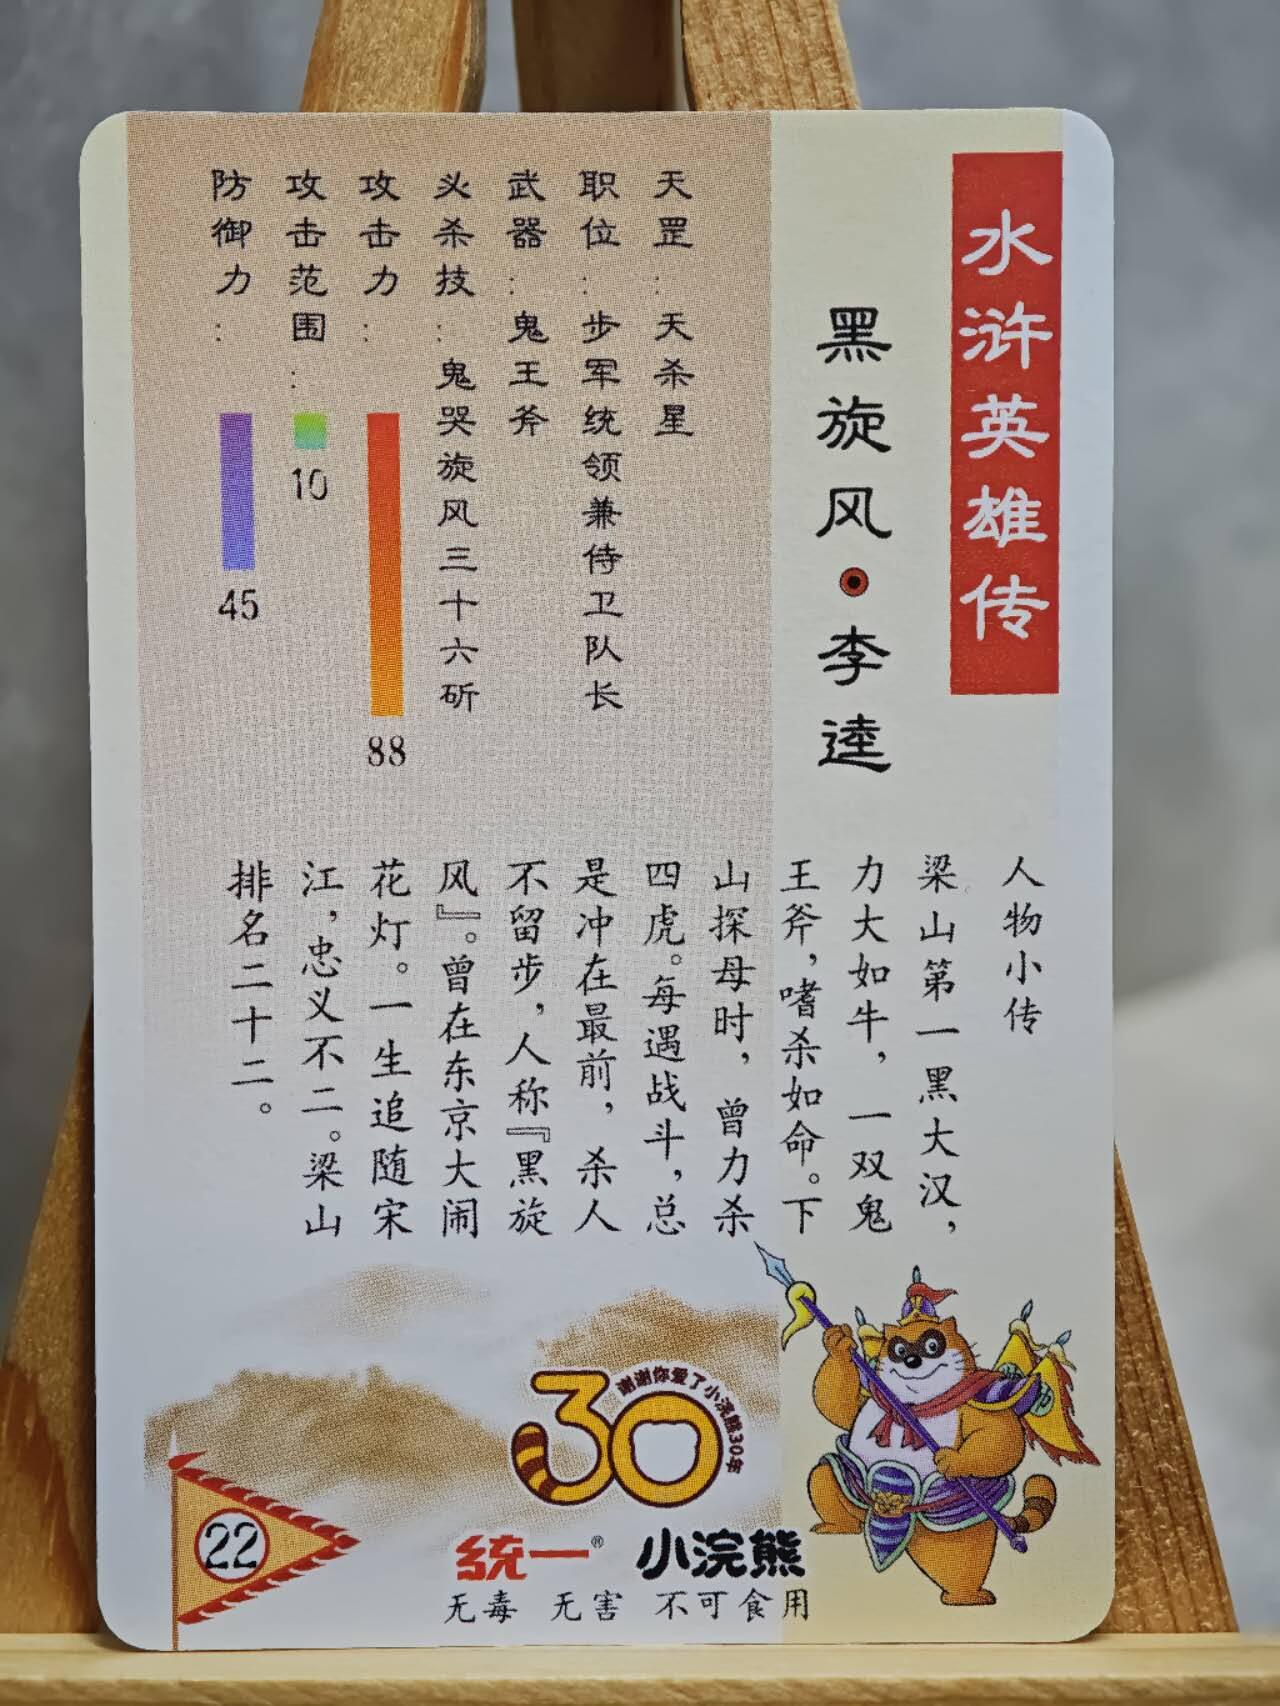 水浒英雄传
黑旋风·李逵
天罡：天杀星
职位：步军统领兼侍卫队长
武器：鬼王斧
必杀技：鬼哭旋风三十六斫
攻击力：88
攻击范围：10
防御力：45
人物小传
梁山第一黑大汉，
力大如牛，一双鬼
王斧，嗜杀如命。下
山探母时，曾力杀
四虎。每遇战斗，总
是冲在最前，杀人
不留步，人称『黑旋
风』。曾在东京大闹
花灯。一生追随宋
江，忠义不二。梁山
排名二十二。
30
谢谢你爱了小浣熊30年
统一® 小浣熊
无毒 无害 不可食用
22